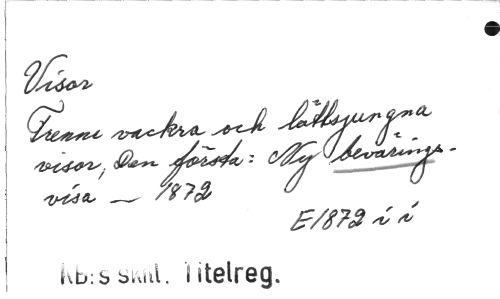 Visor
Trenne vackra och lättsjungna
visor, Den första: Ny bevärings-
visa — 1872
E1872 i i
KB:s skill. Titelreg.